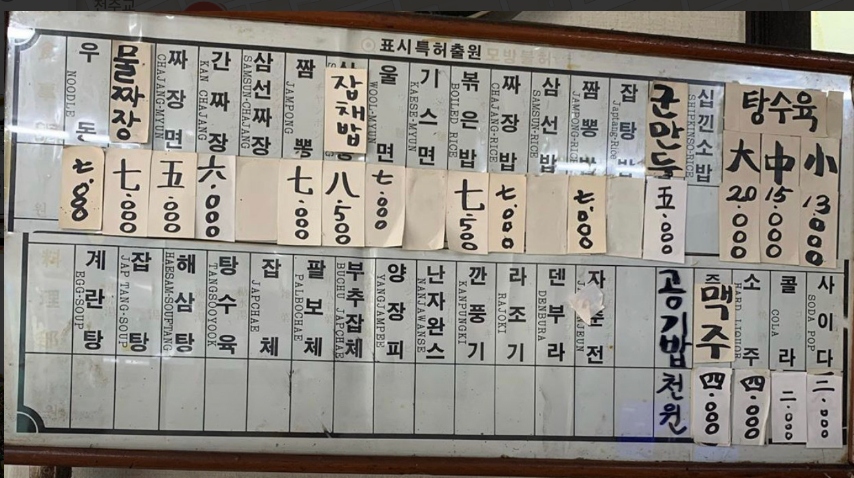 전주교
표시특허출원
우동 NOODLE 七.000
물짜장 七.000
짜장면 CHAJANG-MYUN 五.000
간짜장 KAN CHAJANG 六.000
삼선짜장 SAMSUN-CHAJANG
짬뽕 JAMPONG 七.000
잡채밥 八.500
울면 WOOL-MYUN 七.000
기스면 KAESE-MYUN
볶은밥 BOILED RICE 七.500
짜장밥 CHAJANG-RICE 七.000
삼선밥 SAMSUN-RICE
짬뽕밥 JAMPONG-RICE 七.000
잡탕밥 Japtang-Rice
군만두 五.000
십낀소밥 SHIPKINSO-RICE
탕수육
大 20.000
中 15.000
小 13.000
계란탕 EGG-SOUP
잡탕 JAP TANG-SOUP
해삼탕 HAESAM-SOUPTANG
탕수육 TANGSOOYOOK
잡채 JAPCHAE
팔보채 PALBOCHAE
부추잡채 BUCHU JAPCHAE
양장피 YANGJAMPEE
난자완스 NANJAWANSE
깐풍기 KANPUNGKI
라조기 RAJOKI
덴부라 DENBURA
자춘전
공기밥 천원
맥주 四.000
소주 HARD LIQUOR 四.000
콜라 COLA 二.000
사이다 SODA POP 二.000